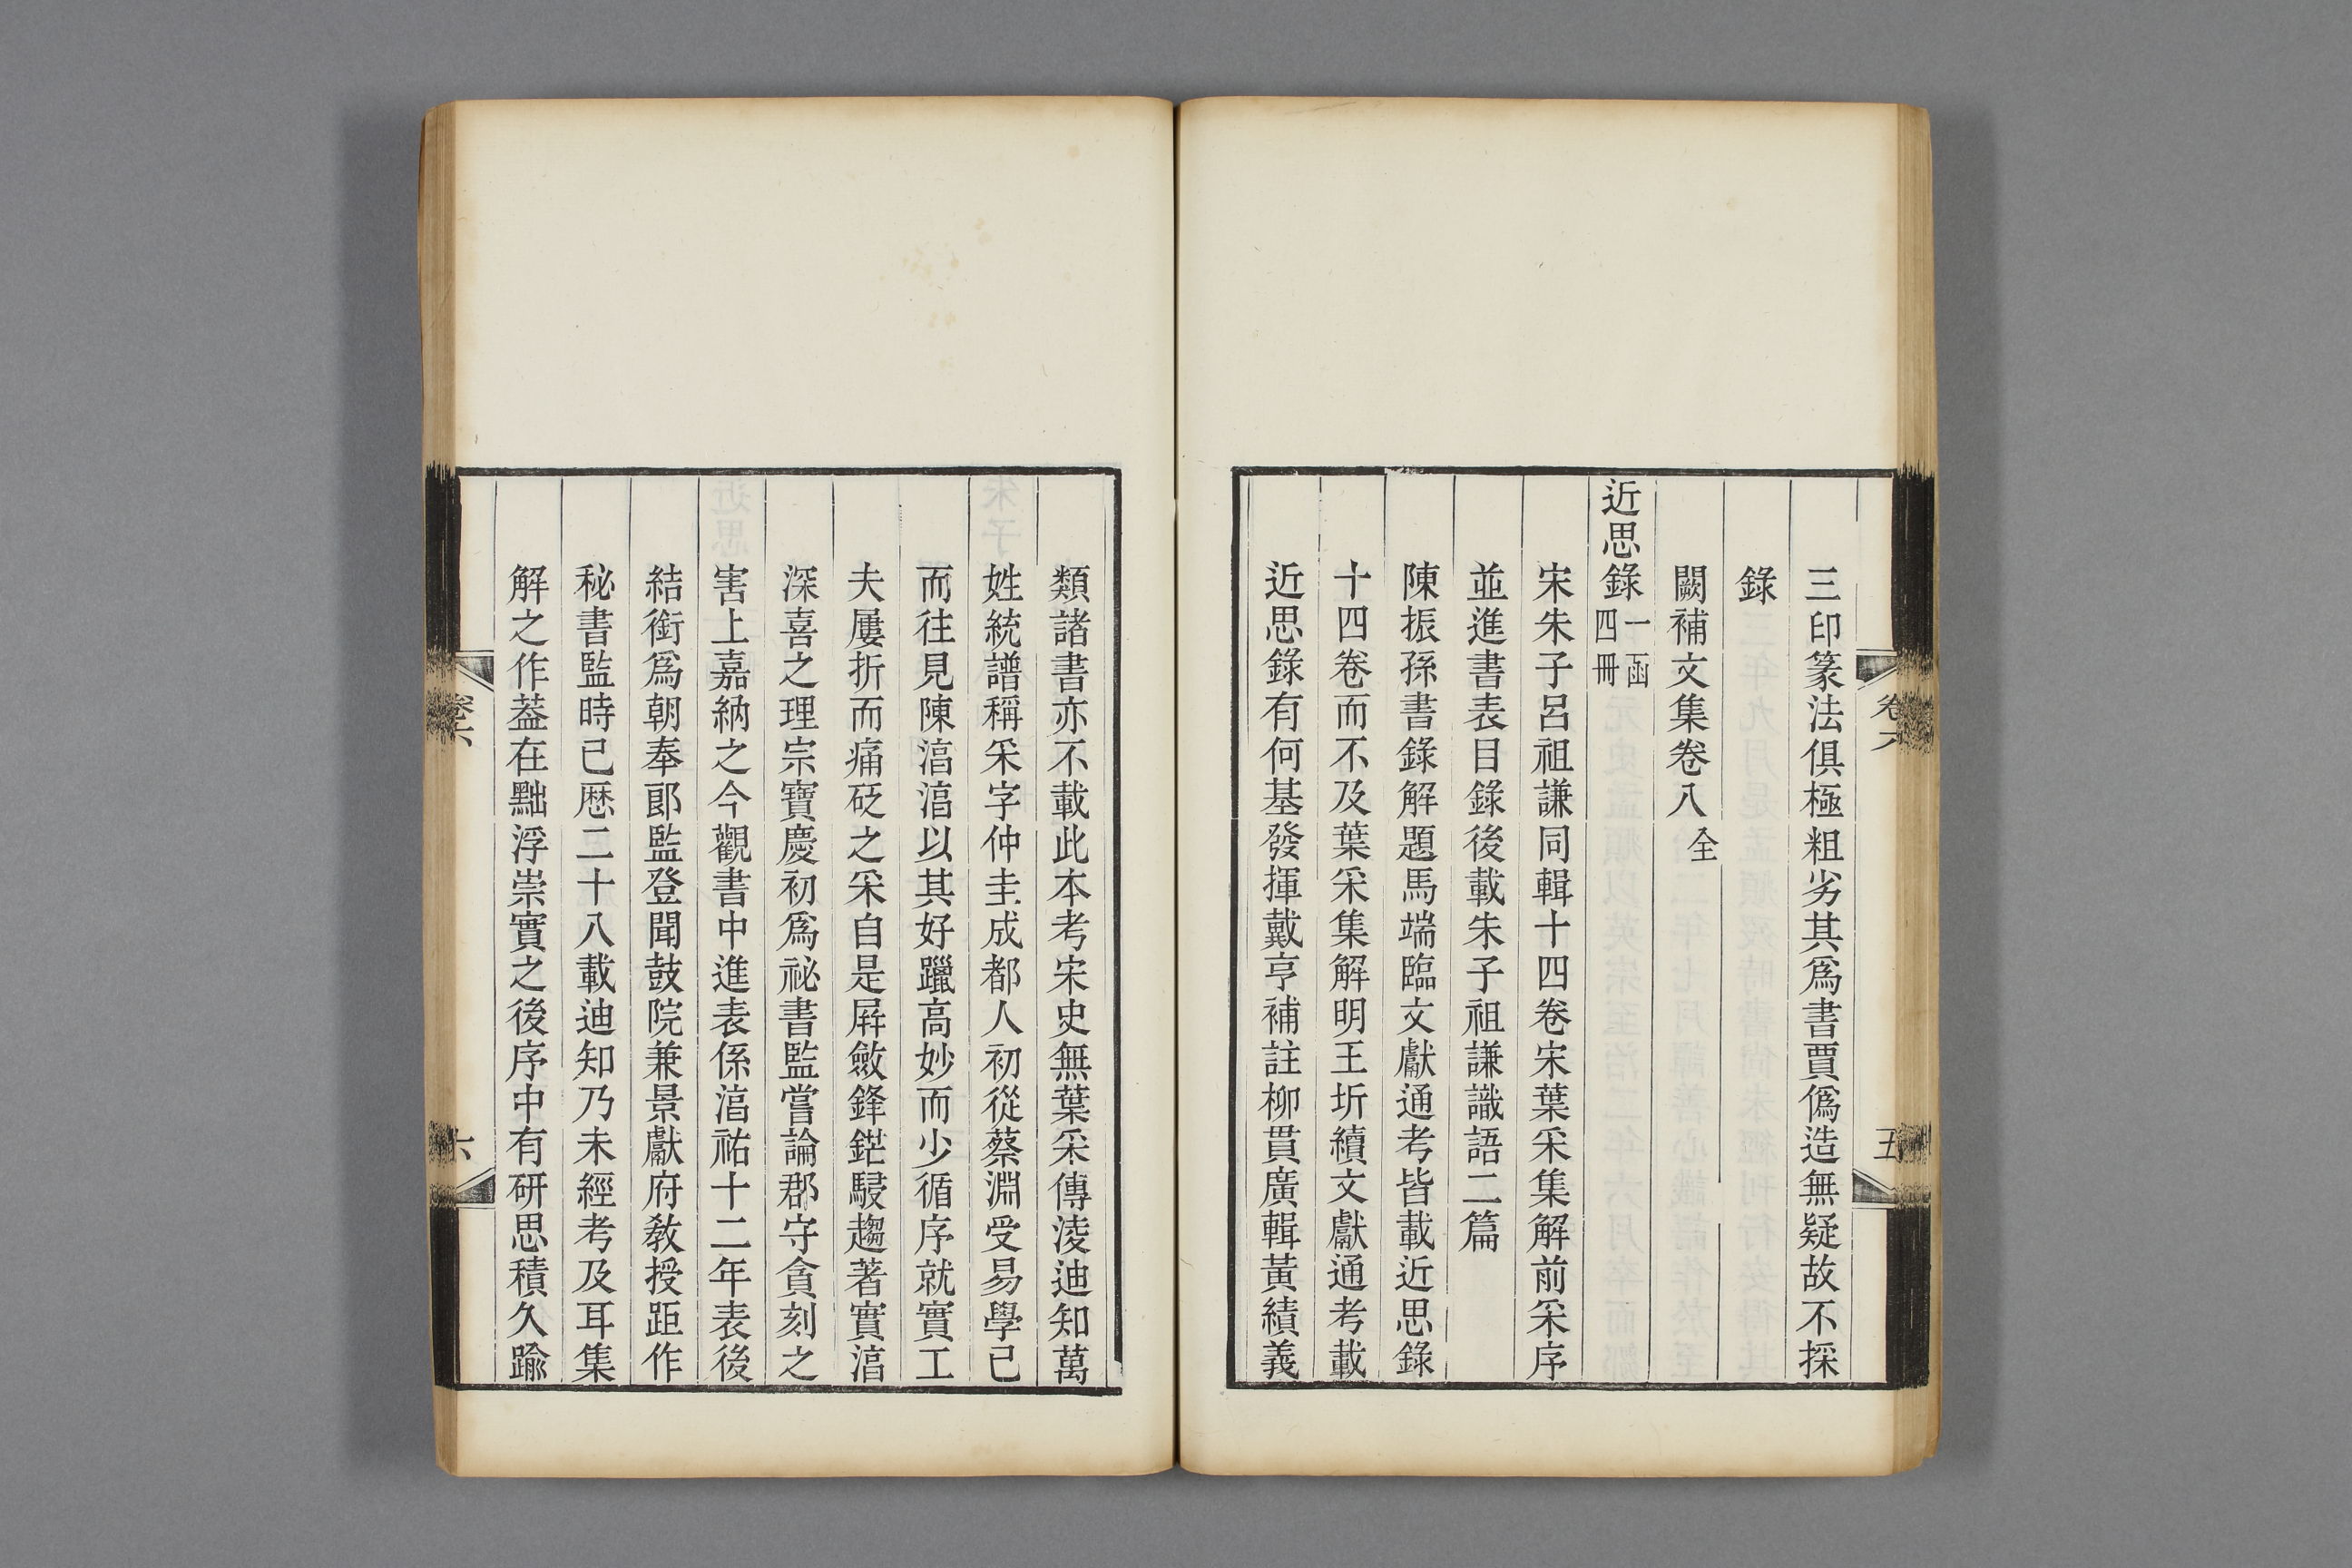 三印篆法俱極粗劣其爲書賈僞造無疑故不採
錄
闕補文集卷八 全
近思錄 一函四冊
宋朱子呂祖謙同輯十四卷宋葉采集解前采序
並進書表目錄後載朱子祖謙識語二篇
陳振孫書錄解題馬端臨文獻通考皆載近思錄
十四卷而不及葉采集解明王圻續文獻通考載
近思錄有何基發揮戴亨補註柳貫廣輯黃績義
類諸書亦不載此本考宋史無葉采傳淩迪知萬
姓統譜稱采字仲圭成都人初從蔡淵受易學已
而往見陳淳淳以其好躐高妙而少循序就實工
夫屢折而痛砭之采自是屛斂鋒鋩駸趨著實淳
深喜之理宗寶慶初爲祕書監嘗論郡守貪刻之
害上嘉納之今觀書中進表係淳祐十二年表後
結銜爲朝奉郎監登聞鼓院兼景獻府敎授距作
秘書監時已歷二十八載迪知乃未經考及耳集
解之作葢在黜浮崇實之後序中有研思積久踰
卷六
五
六